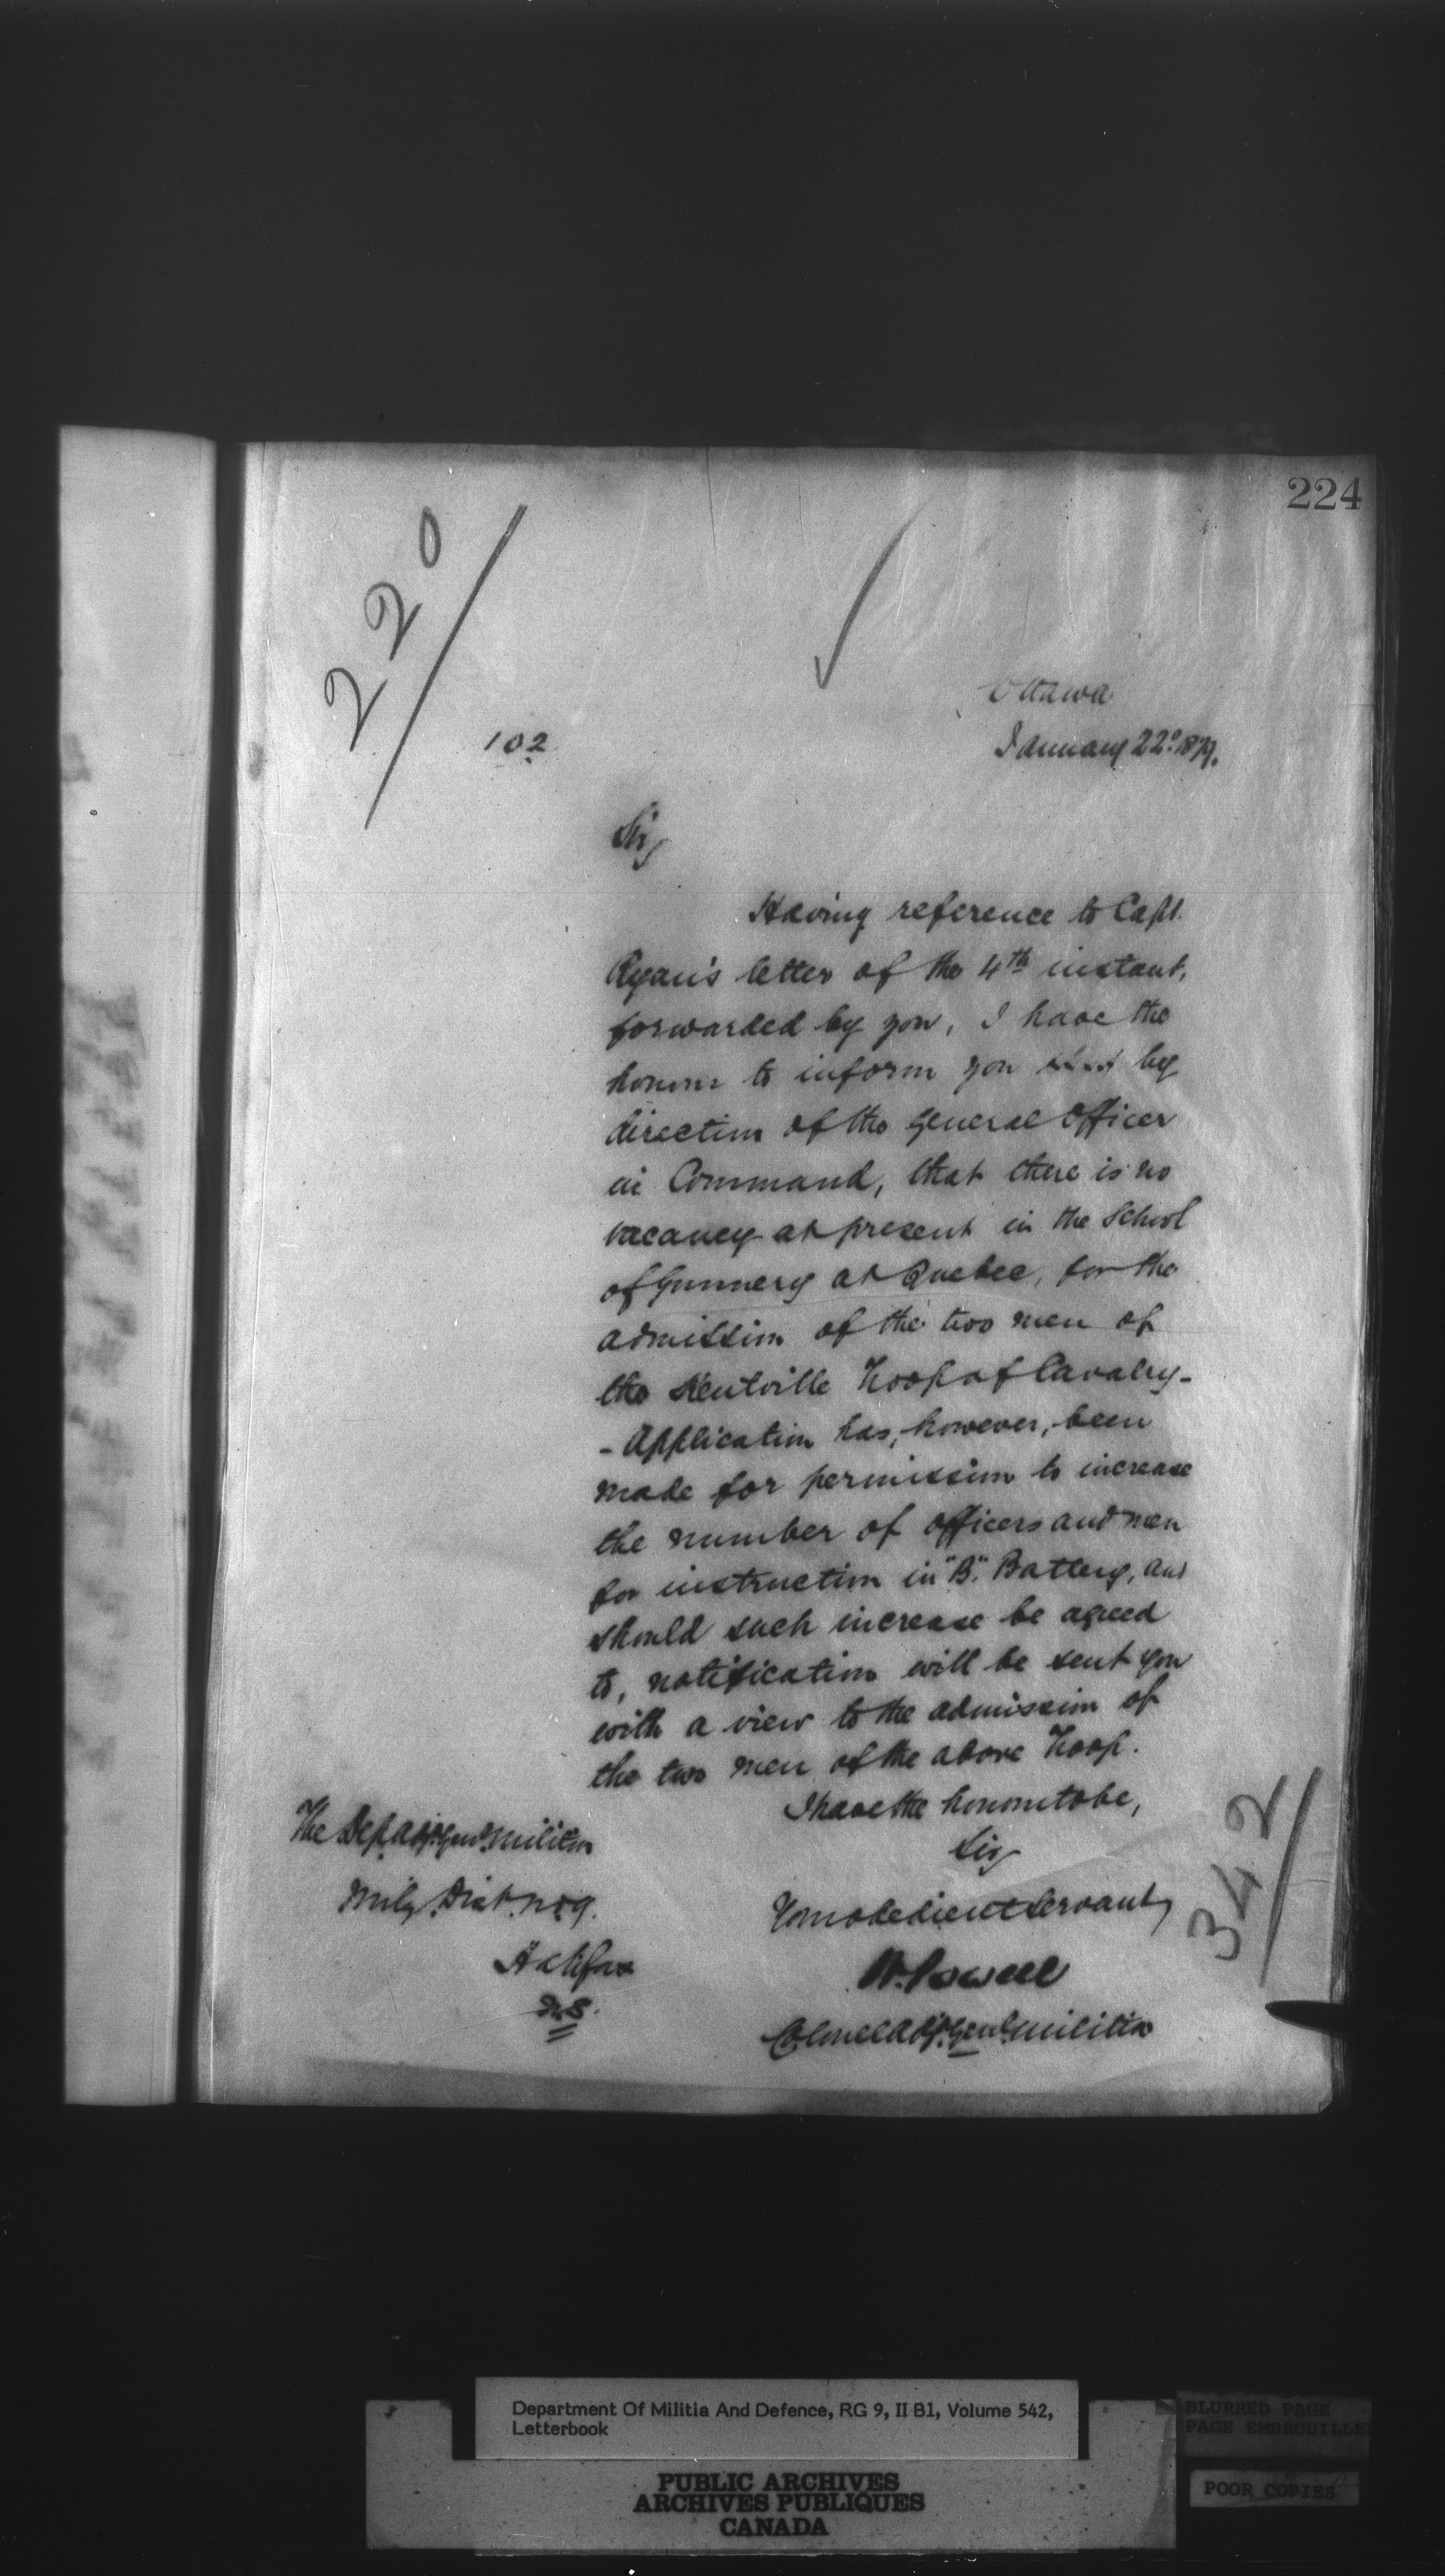 224
220
Ottawa
102
January 22º 1879.
Sir,
Having reference to Capt.
Ryan's letter of the 4th instant,
forwarded by you, I have the
honour to inform you by
direction of the General Officer
in Command, that there is no
vacancy at present in the School
of Gunnery at Quebec, for the
admission of the two men of
the Kentville Troop of Cavalry-
- Application has, however, been
made for permission to increase
the number of officers and men
for instruction in "B". Battery, and
should such increase be agreed
to, notification will be sent you
with a view to the admission of
the two men of the above Troop.
I have the honour to be,
Sir,
Your obedient Servant,
W. Powell
Colonel Adjt. Genl. Militia
The Dep. Adjt. Genl. Militia
Mily. Dist. No 9.
Halifax
N.S.
342
Department Of Militia And Defence, RG 9, II B1, Volume 542,
Letterbook
PUBLIC ARCHIVES
ARCHIVES PUBLIQUES
CANADA
BLURRED PAGE
PAGE EMBROUILLE
POOR COPIES